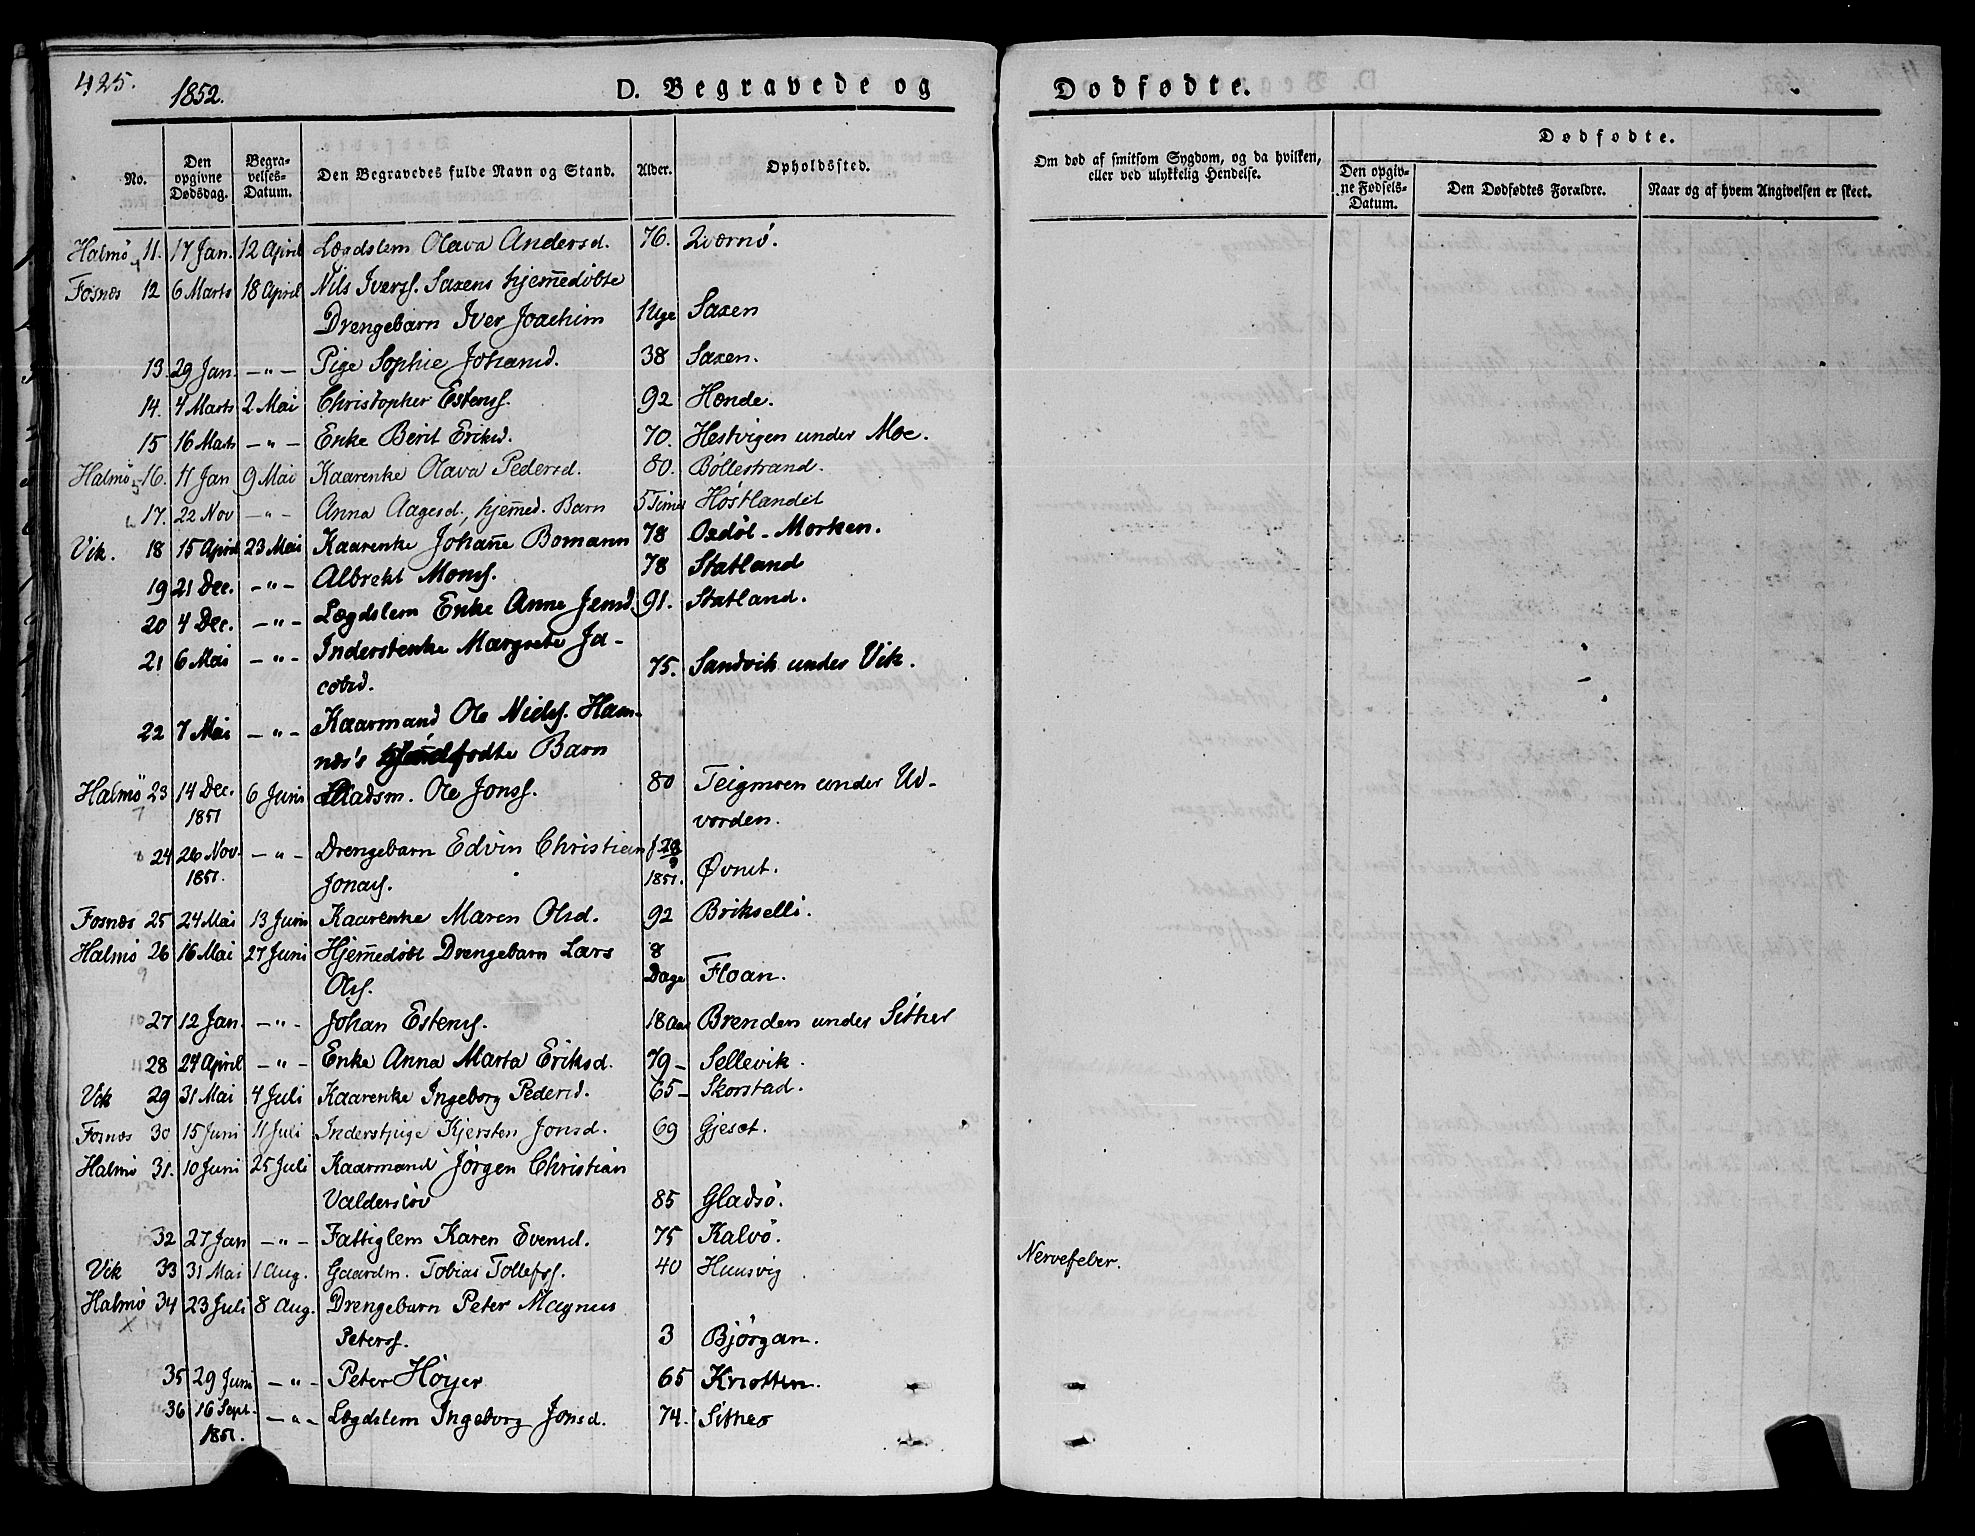 425.
1852.
D. Begravede og
Dødfødte.
No.
Den opgivne Dødsdag.
Begravelses-Datum.
Den Begravedes fulde Navn og Stand.
Alder.
Opholdssted.
Om død af smitsom Sygdom, og da hvilken, eller ved ulykkelig Hendelse.
Dødfødte.
Den opgivne Fødsels-Datum.
Den Dødfødtes Forældre.
Naar og af hvem Angivelsen er skeet.
Halmø 11. 17 Jan. 12 April Lægdslem Olava Andersd. 76. Qværnø.
Fosnæs 12 6 Marts 18 April Nils Iverss. Saxens hjem̅edöbte
Drengebarn Iver Joachim 1 Uge Saxen
13. 29 Jan. —"— Pige Sophie Johansd. 38 Saxen.
14. 4 Marts 2 Mai Christopher Estenss. 92 Hænde.
15 16 Marts —"— Enke Berit Eriksd. 70. Hestvigen under Moe.
Halmø 16. 11 Jan 9 Mai Kaarenke Olava Pedersd. 80. Böllestrand.
17. 22 Nov —"— Anna Aagesd., hjem̅ed. Barn 5 Timer Höstlandet
Vik. 18 15 April 23 Mai Kaarenke Johan̅e Bomann 78 Oxdöl-Morken.
19 21 Dec. —"— Albrekt Monss. 78 Statland
20 4 Dec. —"— Lægdslem Enke Anne Jensd. 91. Statland.
21 6 Mai —"— Inderstenke Margrete Ja-
cobsd. 75. Sandvik under Vik.
22 7 Mai —"— Kaarmand Ole Niels. Ham-
næs's födte Barn
Halmø 23 14 Dec. 1851 6 Juni Pladsm. Ole Jonss. 80 Teigmoen under Ud-
vorden.
24 26 Nov. 1851. —"— Drengebarn Edvin Christian
Jonass. 1851. Øvnet.
Fosnæs 25 24 Mai 13 Juni Kaarenke Maren Olsd. 92 Brikselli.
Halmø 26 16 Mai 27 Juni Hjem̅edöbt Drengebarn Lars 8
Olss. Dage Floan.
27 12 Jan. —"— Johan Estenss. 18 Aar Brenden under Sitter
28 24 April —"— Enke Anna Marta Eriksd. 79 — Sellevik.
Vik 29 31 Mai 4 Juli Kaarenke Ingeborg Pedersd. 65 — Skorstad.
Fosnæs 30 15 Juni 11 Juli Inderstpige Kjersten Jonsd. 69 Gjesæt.
Halmø 31. 10 Juni 25 Juli Kaarmand Jörgen Christian
Valderslöv 85 Gladsö.
32 27 Jan —"— Fattiglem Karen Evensd. 75 Kalvö.
Vik 33 31 Mai 1 Aug. Gaardm. Tobias Tollefss. 40 Huusvig Nervefeber.
Halmø 34 23 Juli 8 Aug. Drengebarn Peter Magnus
Peterss. 3 Björgan.
35 29 Juni —"— Peter Höyer 65 Knotten.
36 16 Sept. 1851. —"— Lægdslem Ingeborg Jonsd. 74. Sitter